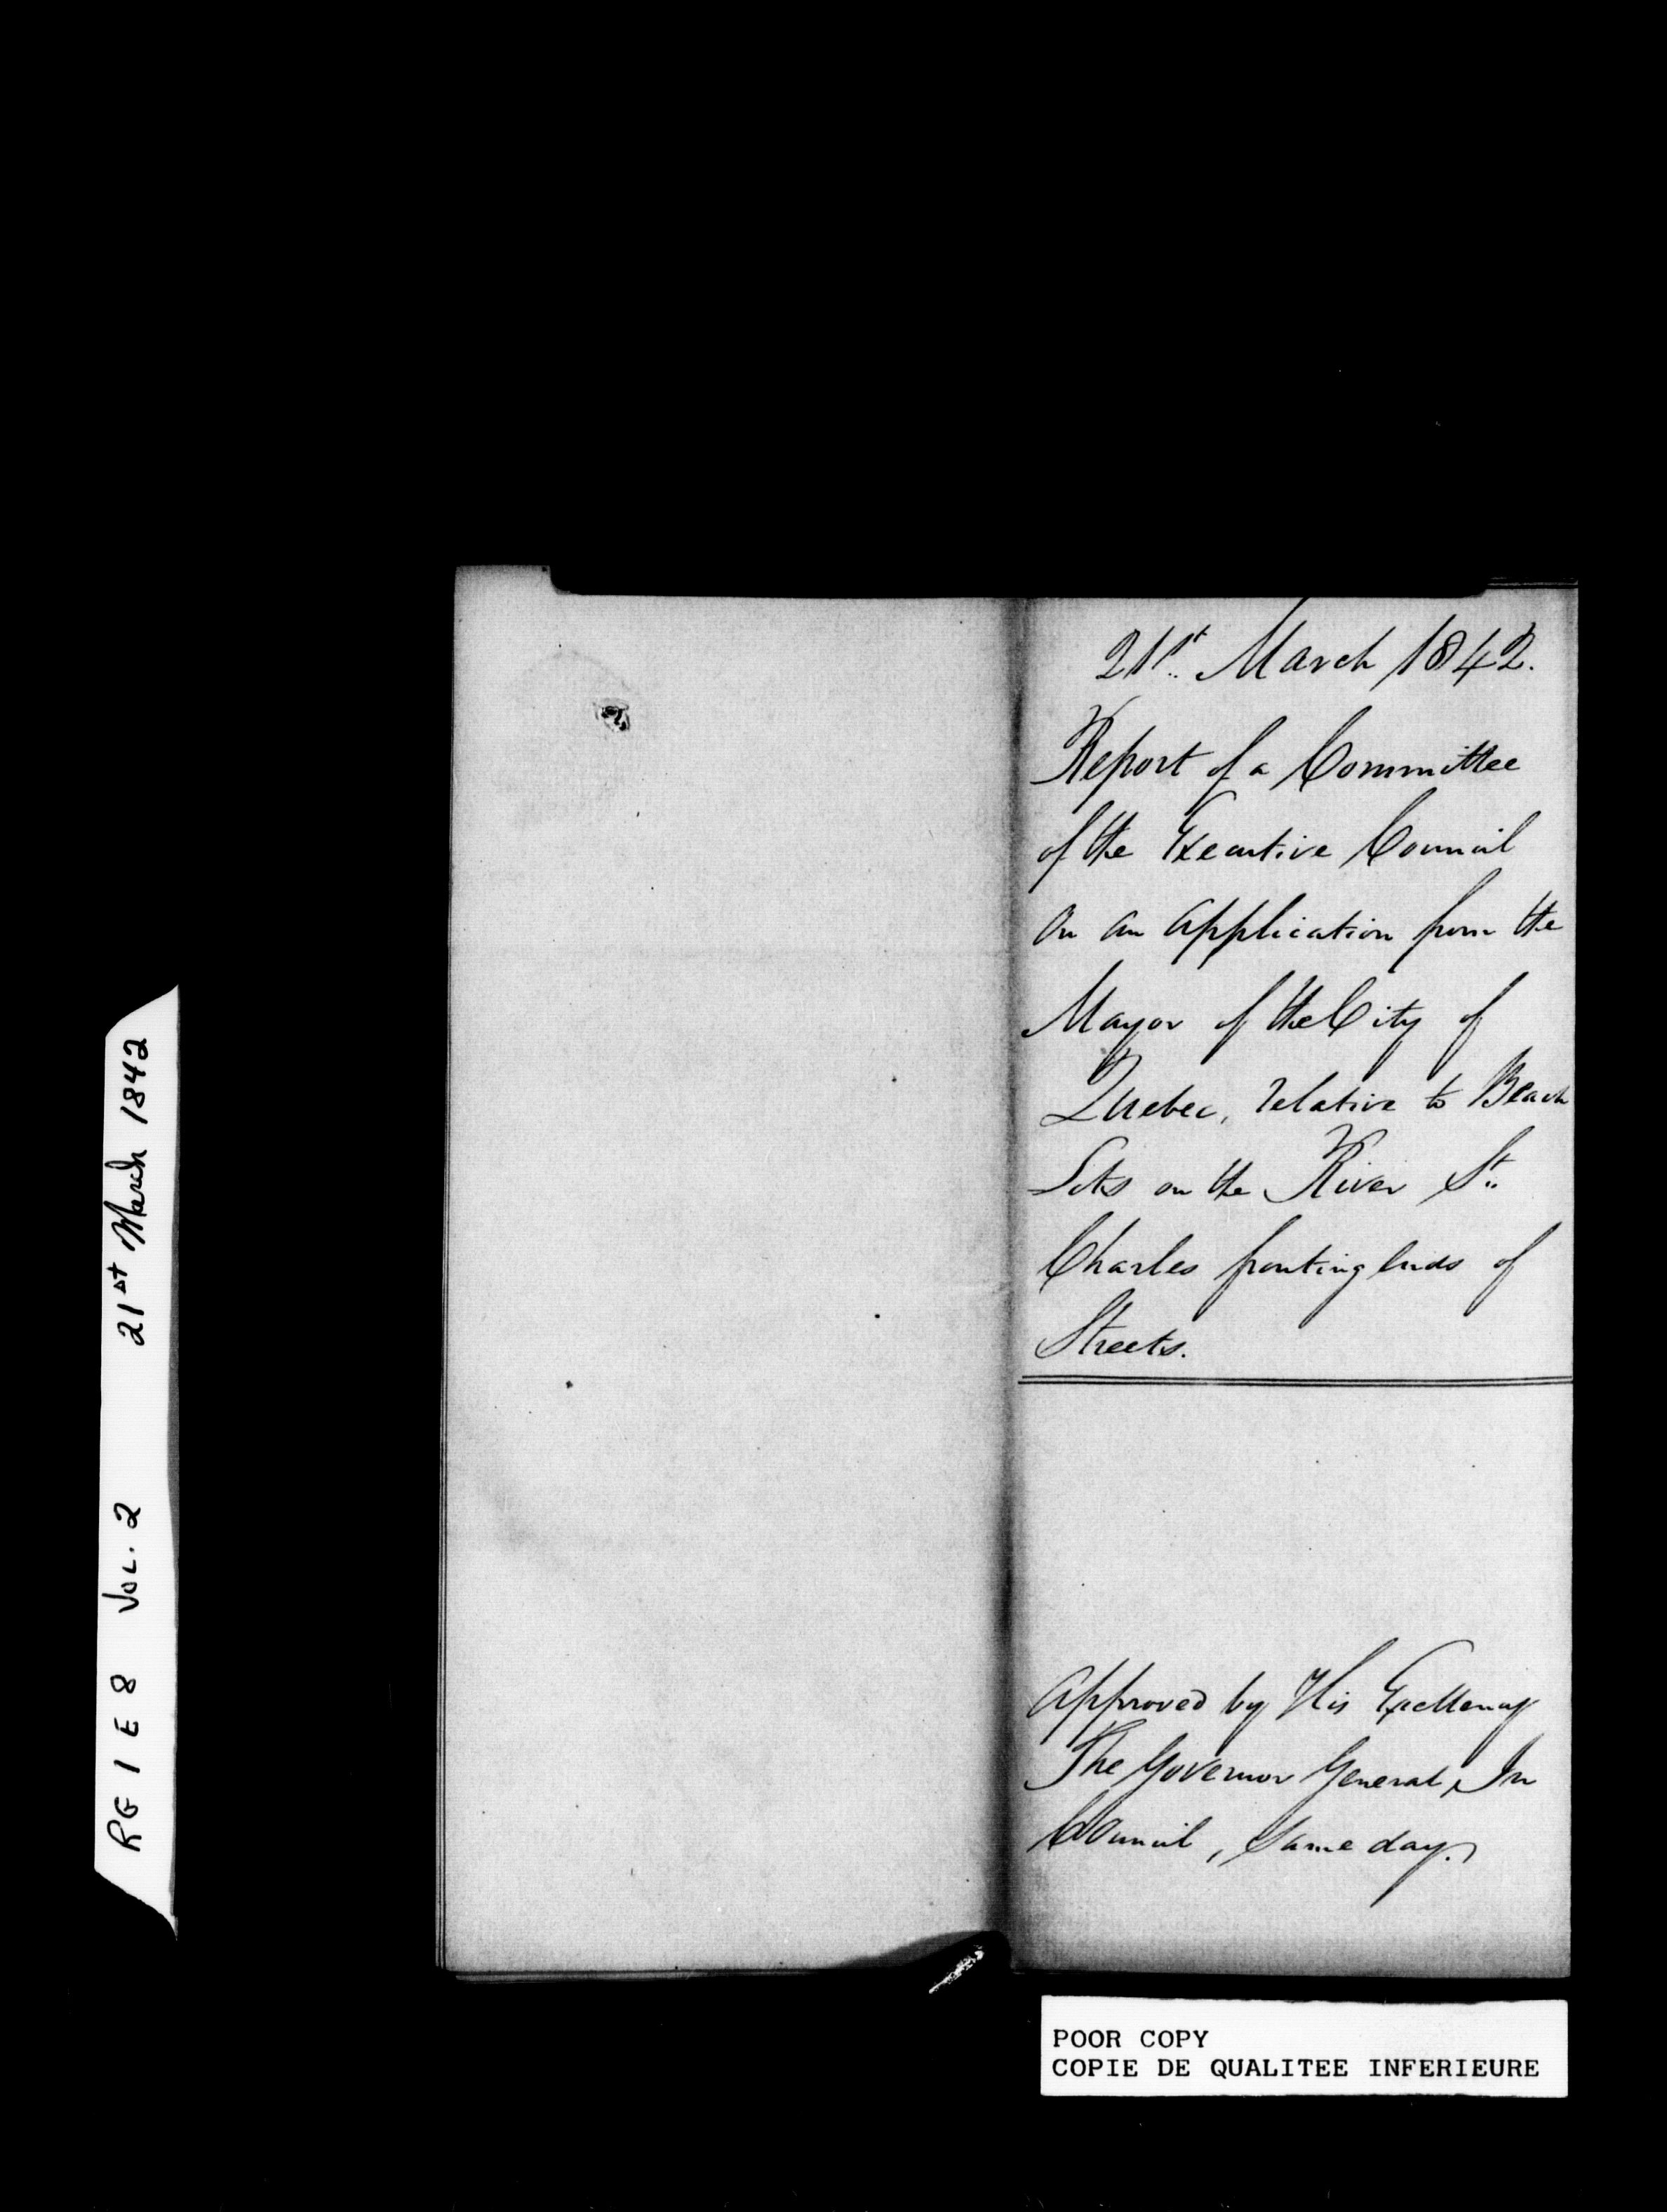 21st March 1842.
Report of a Committee
of the Executive Council
On an Application from the
Mayor of the City of
Quebec, relative to Beach
Lots on the River St.
Charles fronting Ends of
Streets.
Approved by His Excellency
The Governor General, In
Council, Same day.
RG 1 E 8 VOL. 2 21st March 1842
POOR COPY
COPIE DE QUALITEE INFERIEURE